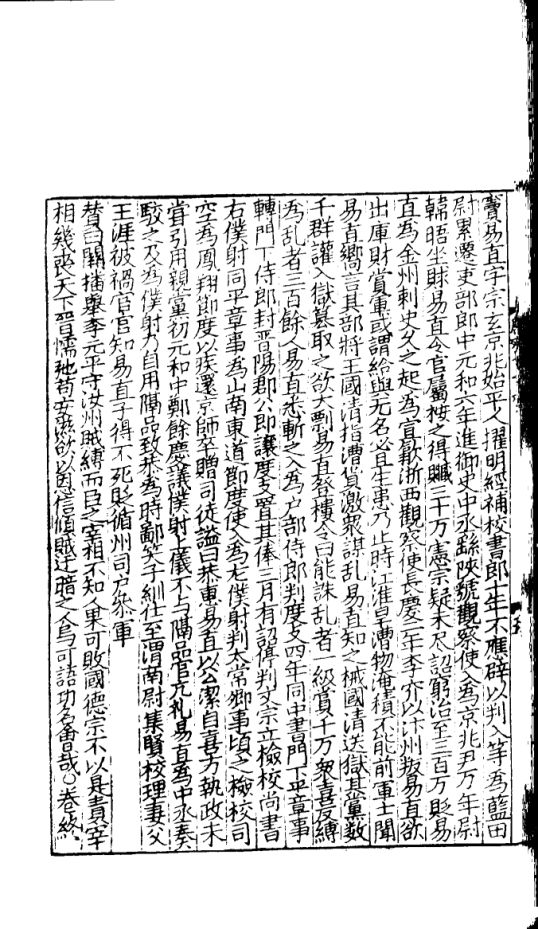 竇易直字宗玄京兆始平人擢明經補校書郎十年不應辟以判入等為藍田
尉累遷吏部郎中元和六年進御史中丞繇陝虢觀察使入為京兆尹万年尉
韓晤坐賕易直令官屬按之得贓三十万憲宗疑未尽詔窮治至三百万貶易
直為金州刺史久之起為宣歙浙西觀察使長慶二年李㝏以汴州叛易直欲
出庫財賞軍或謂給與无名必且生患乃止時江淮旱漕物淹積不能前軍士聞
易直嚮言其部將王國清指漕貨激衆謀乱易直知之械國清送獄其黨数
千群讙入獄篡取之欲大剽易直登樓令曰能誅乱者一級賞千万衆喜反縛
為乱者三百餘人易直悉斬之入為户部侍郎判度支四年同中書門下平章事
轉門下侍郎封晋陽郡公即讓度支置其俸三月有詔停判文宗立檢校尚書
右僕射同平章事為山南東道節度使入為左僕射判太常卿事頃之檢校司
空為鳳翔節度以疾還京師卒贈司徒謚曰恭惠易直以公潔自喜方執政未
甞引用親黨初元和中鄭餘慶議僕射上儀不与隔品官亢礼易直為中丞奏
駮之及為僕射乃自用隔品致恭為時鄙笑子紃仕至渭南尉集賢校理妻父
王涯被禍宦官知易直子得不死貶循州司户參軍
賛曰關播舉李元平守汝州賊縛而臣之宰相不知人果可敗國德宗不以是責宰
相幾喪天下晋懦弛苟安滋欲以恩信傾賊迂暗之人烏可語功名會哉〇卷終